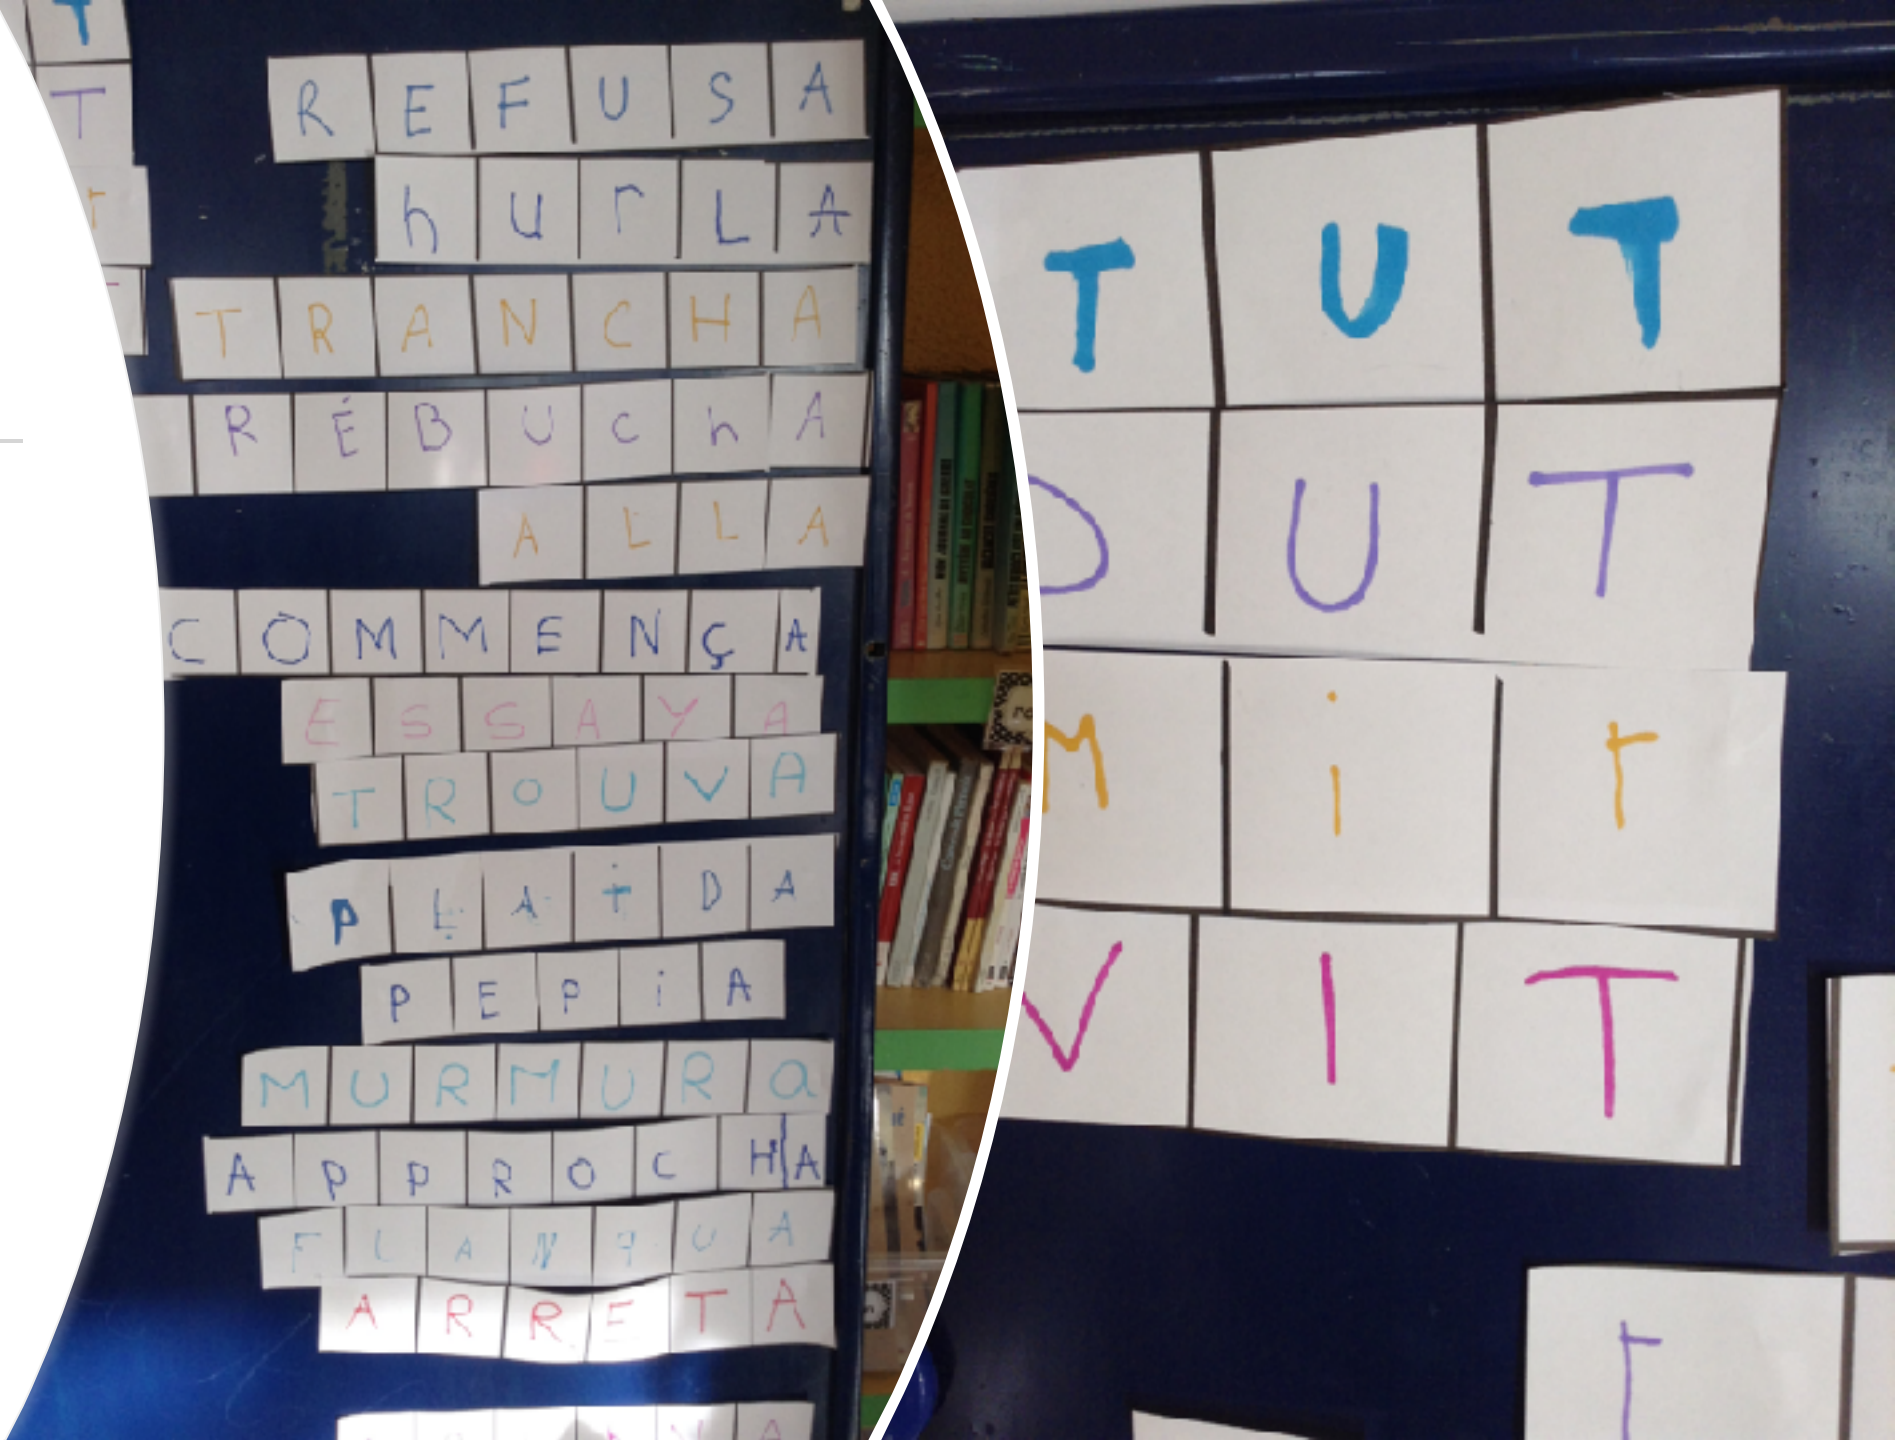 REFUSA
hUrLA
TRANCHA
RÉBUChA
ALLA
COMMENÇA
ESSAYA
TROUVA
PLAiDA
PEPiA
MURMURa
APPROCHA
FLANqUA
ARRETA
TUT
UT
Mir
VIT